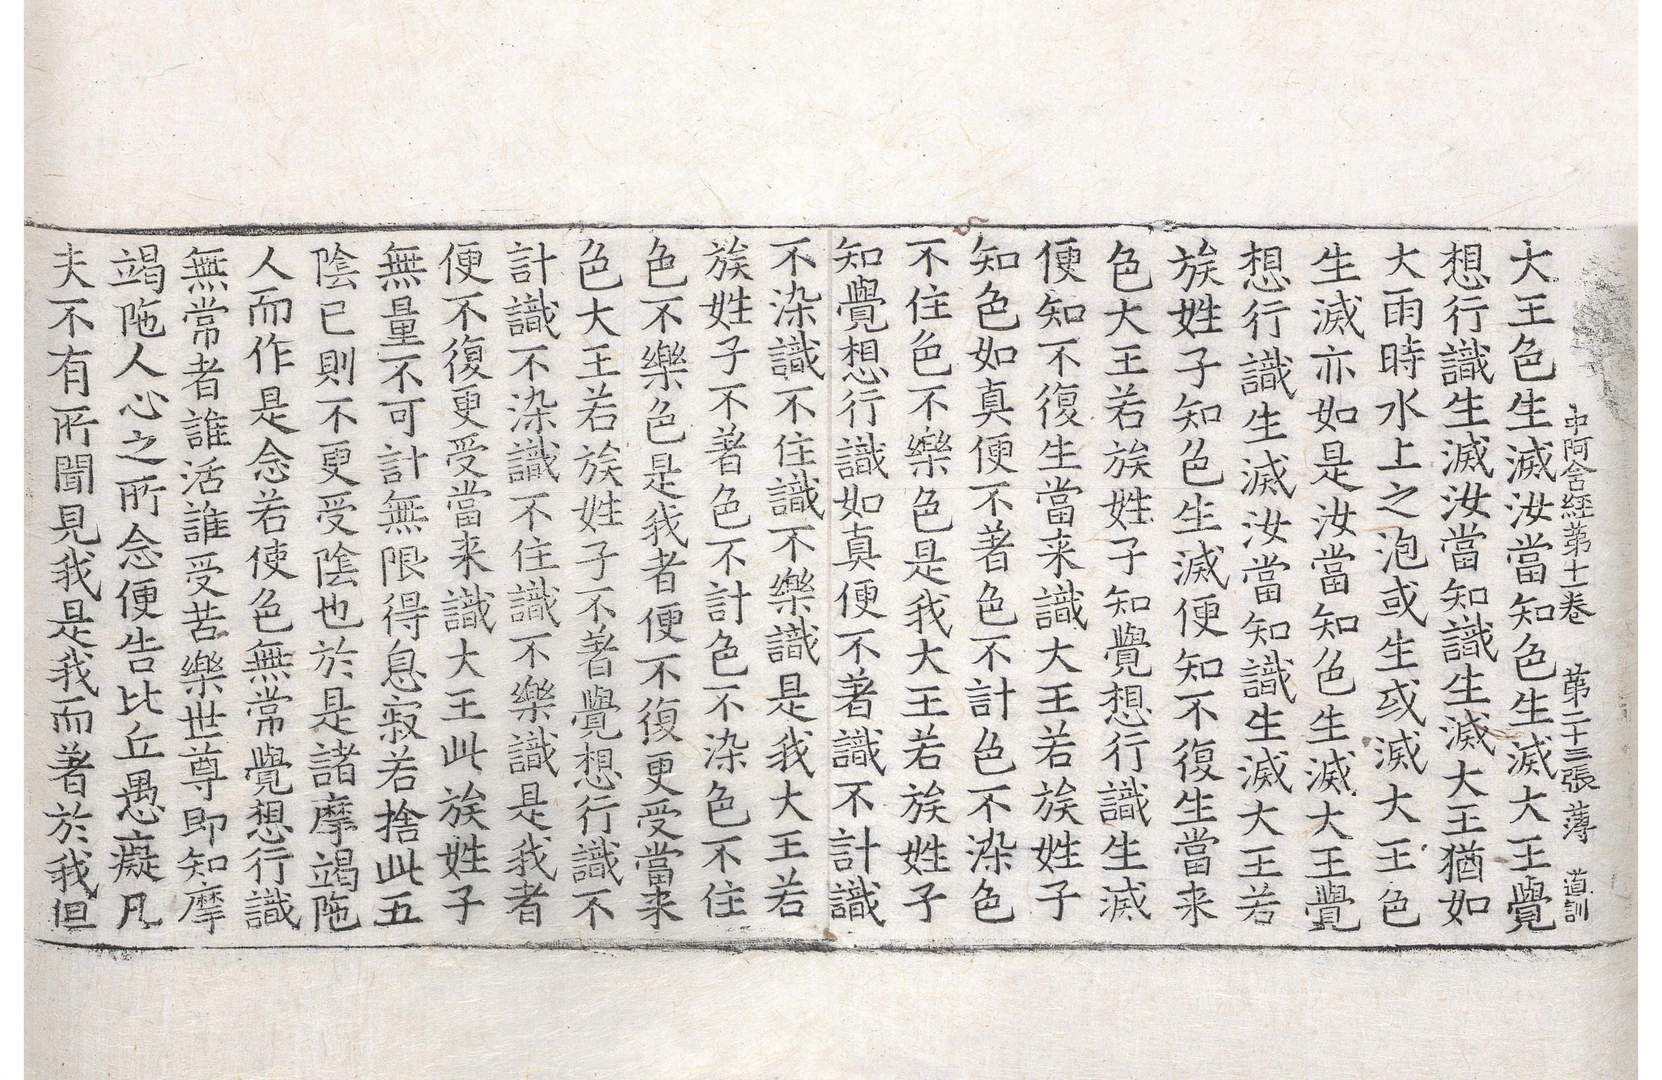 中阿含經第十一卷 第二十三張 薄 道訓
大王色生滅汝當知色生滅大王覺
想行識生滅汝當知識生滅大王猶如
大雨時水上之泡或生或滅大王色
生滅亦如是汝當知色生滅大王覺
想行識生滅汝當知識生滅大王若
族姓子知色生滅便知不復生當来
色大王若族姓子知覺想行識生滅
便知不復生當来識大王若族姓子
知色如真便不著色不計色不染色
不住色不樂色是我大王若族姓子
知覺想行識如真便不著識不計識
不染識不住識不樂識是我大王若
族姓子不著色不計色不染色不住
色不樂色是我者便不復更受當来
色大王若族姓子不著覺想行識不
計識不染識不住識不樂識是我者
便不復更受當来識大王此族姓子
無量不可計無限得息寂若捨此五
陰已則不更受陰也於是諸摩竭陁
人而作是念若使色無常覺想行識
無常者誰活誰受苦樂世尊即知摩
竭陁人心之所念便告比丘愚癡凡
夫不有所聞見我是我而著於我但